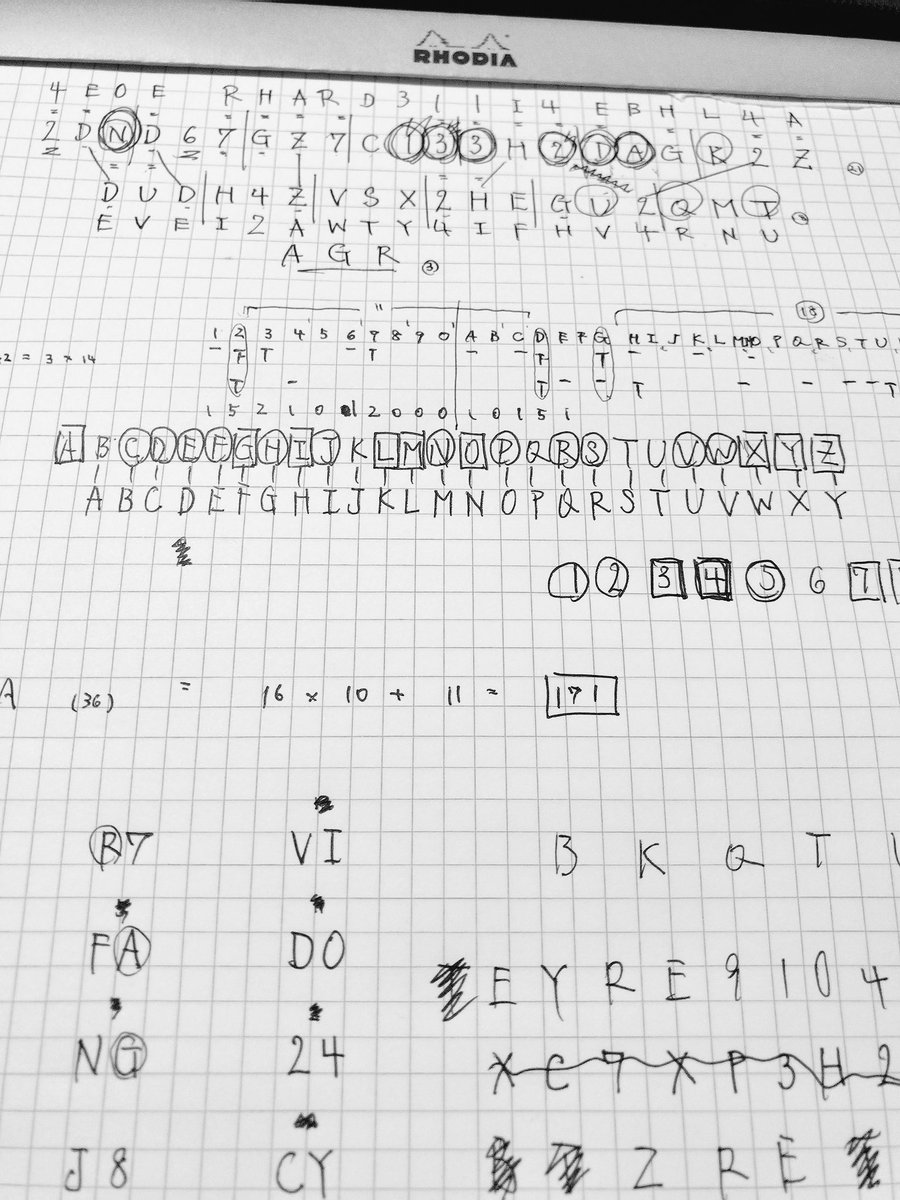 RHODIA
4 E O E R H A R D 3 1 1 I 4 E B H L 4 A
2 D N D 6 7 G Z 7 C 1 3 3 H 2 D A G K 2 Z
D U D H 4 Z V S X 2 H E G U 2 Q M T
E V E I 2 A W T Y 4 I F H V 4 R N U
A G R 3
11 18
1 2 3 4 5 6 7 8 9 0 A B C D E F G H I J K L M N O P Q R S T U
2 = 3 x 14
T T T T T
T T T T
1 5 2 1 0 1 2 0 0 0 1 0 1 5 1
A B C D E F G H I J K L M N O P Q R S T U V W X Y Z
A B C D E F G H I J K L M N O P Q R S T U V W X Y
1 2 3 4 5 6 7
A (36) = 16 x 10 + 11 = 171
R7 VI B K Q T
FA DO
E Y R E 9 1 0 4
NG 24
X C 7 X P 3 H 2
J8 CY Z R E